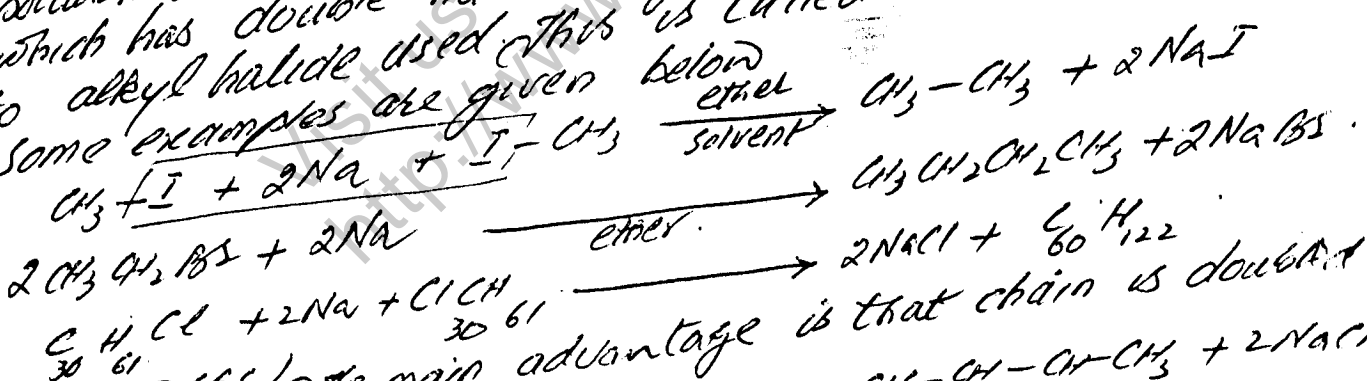 which has double
to alkyl halide used. This is called
some examples are given below
CH₃-I + 2Na + I-CH₃ ether solvent → CH₃-CH₃ + 2NaI
2CH₃CH₂Br + 2Na ether. → CH₃CH₂CH₂CH₃ + 2NaBr.
C₃₀H₆₁Cl + 2Na + ClC₃₀H₆₁ → 2NaCl + C₆₀H₁₂₂
main advantage is that chain is doubled
-CH-CH-CH₃ + 2NaCl
Visit us
http://www